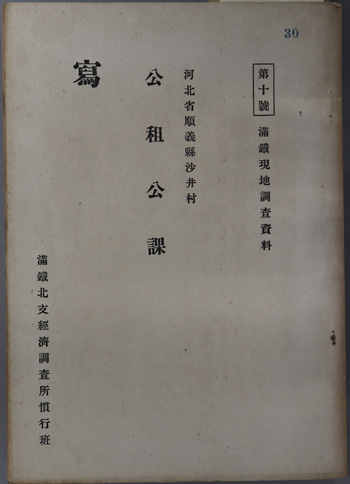 30
第十號 滿鐵現地調查資料
河北省順義縣沙井村
公租公課
寫
滿鐵北支經濟調查所慣行班